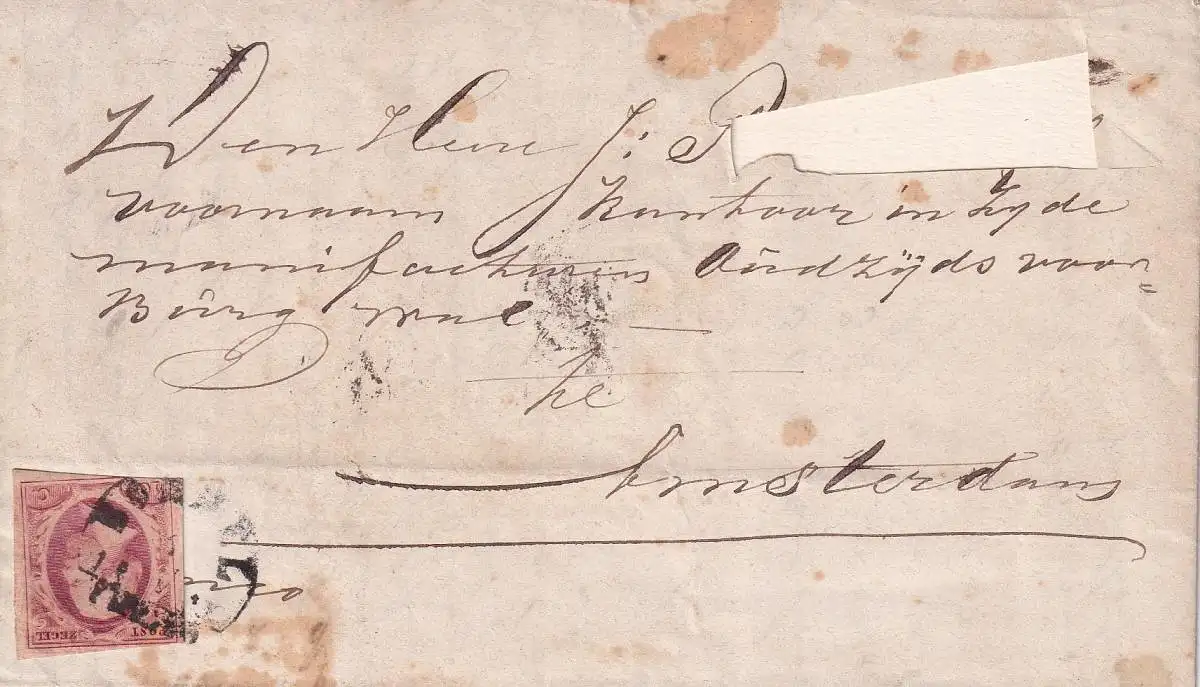 Den Heere J: P
voornaam kantoor in Zyde
manifacturen Oudzÿds voor=
Burg wal —
te
Amsterdam
POST ZEGEL